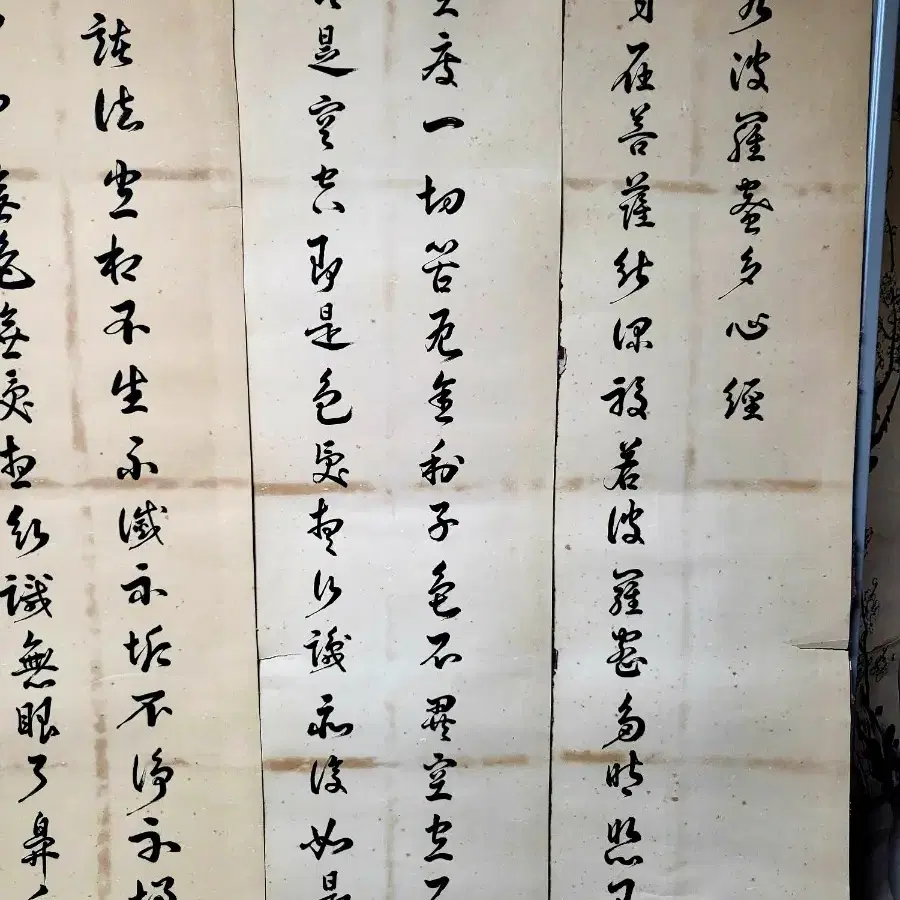 波羅蜜多心經
在菩薩行深般若波羅蜜多時照
度一切苦厄舍利子色不異空空不
是空空即是色受想行識亦復如是
諸法空相不生不滅不垢不淨不增
無色無受想行識無眼耳鼻